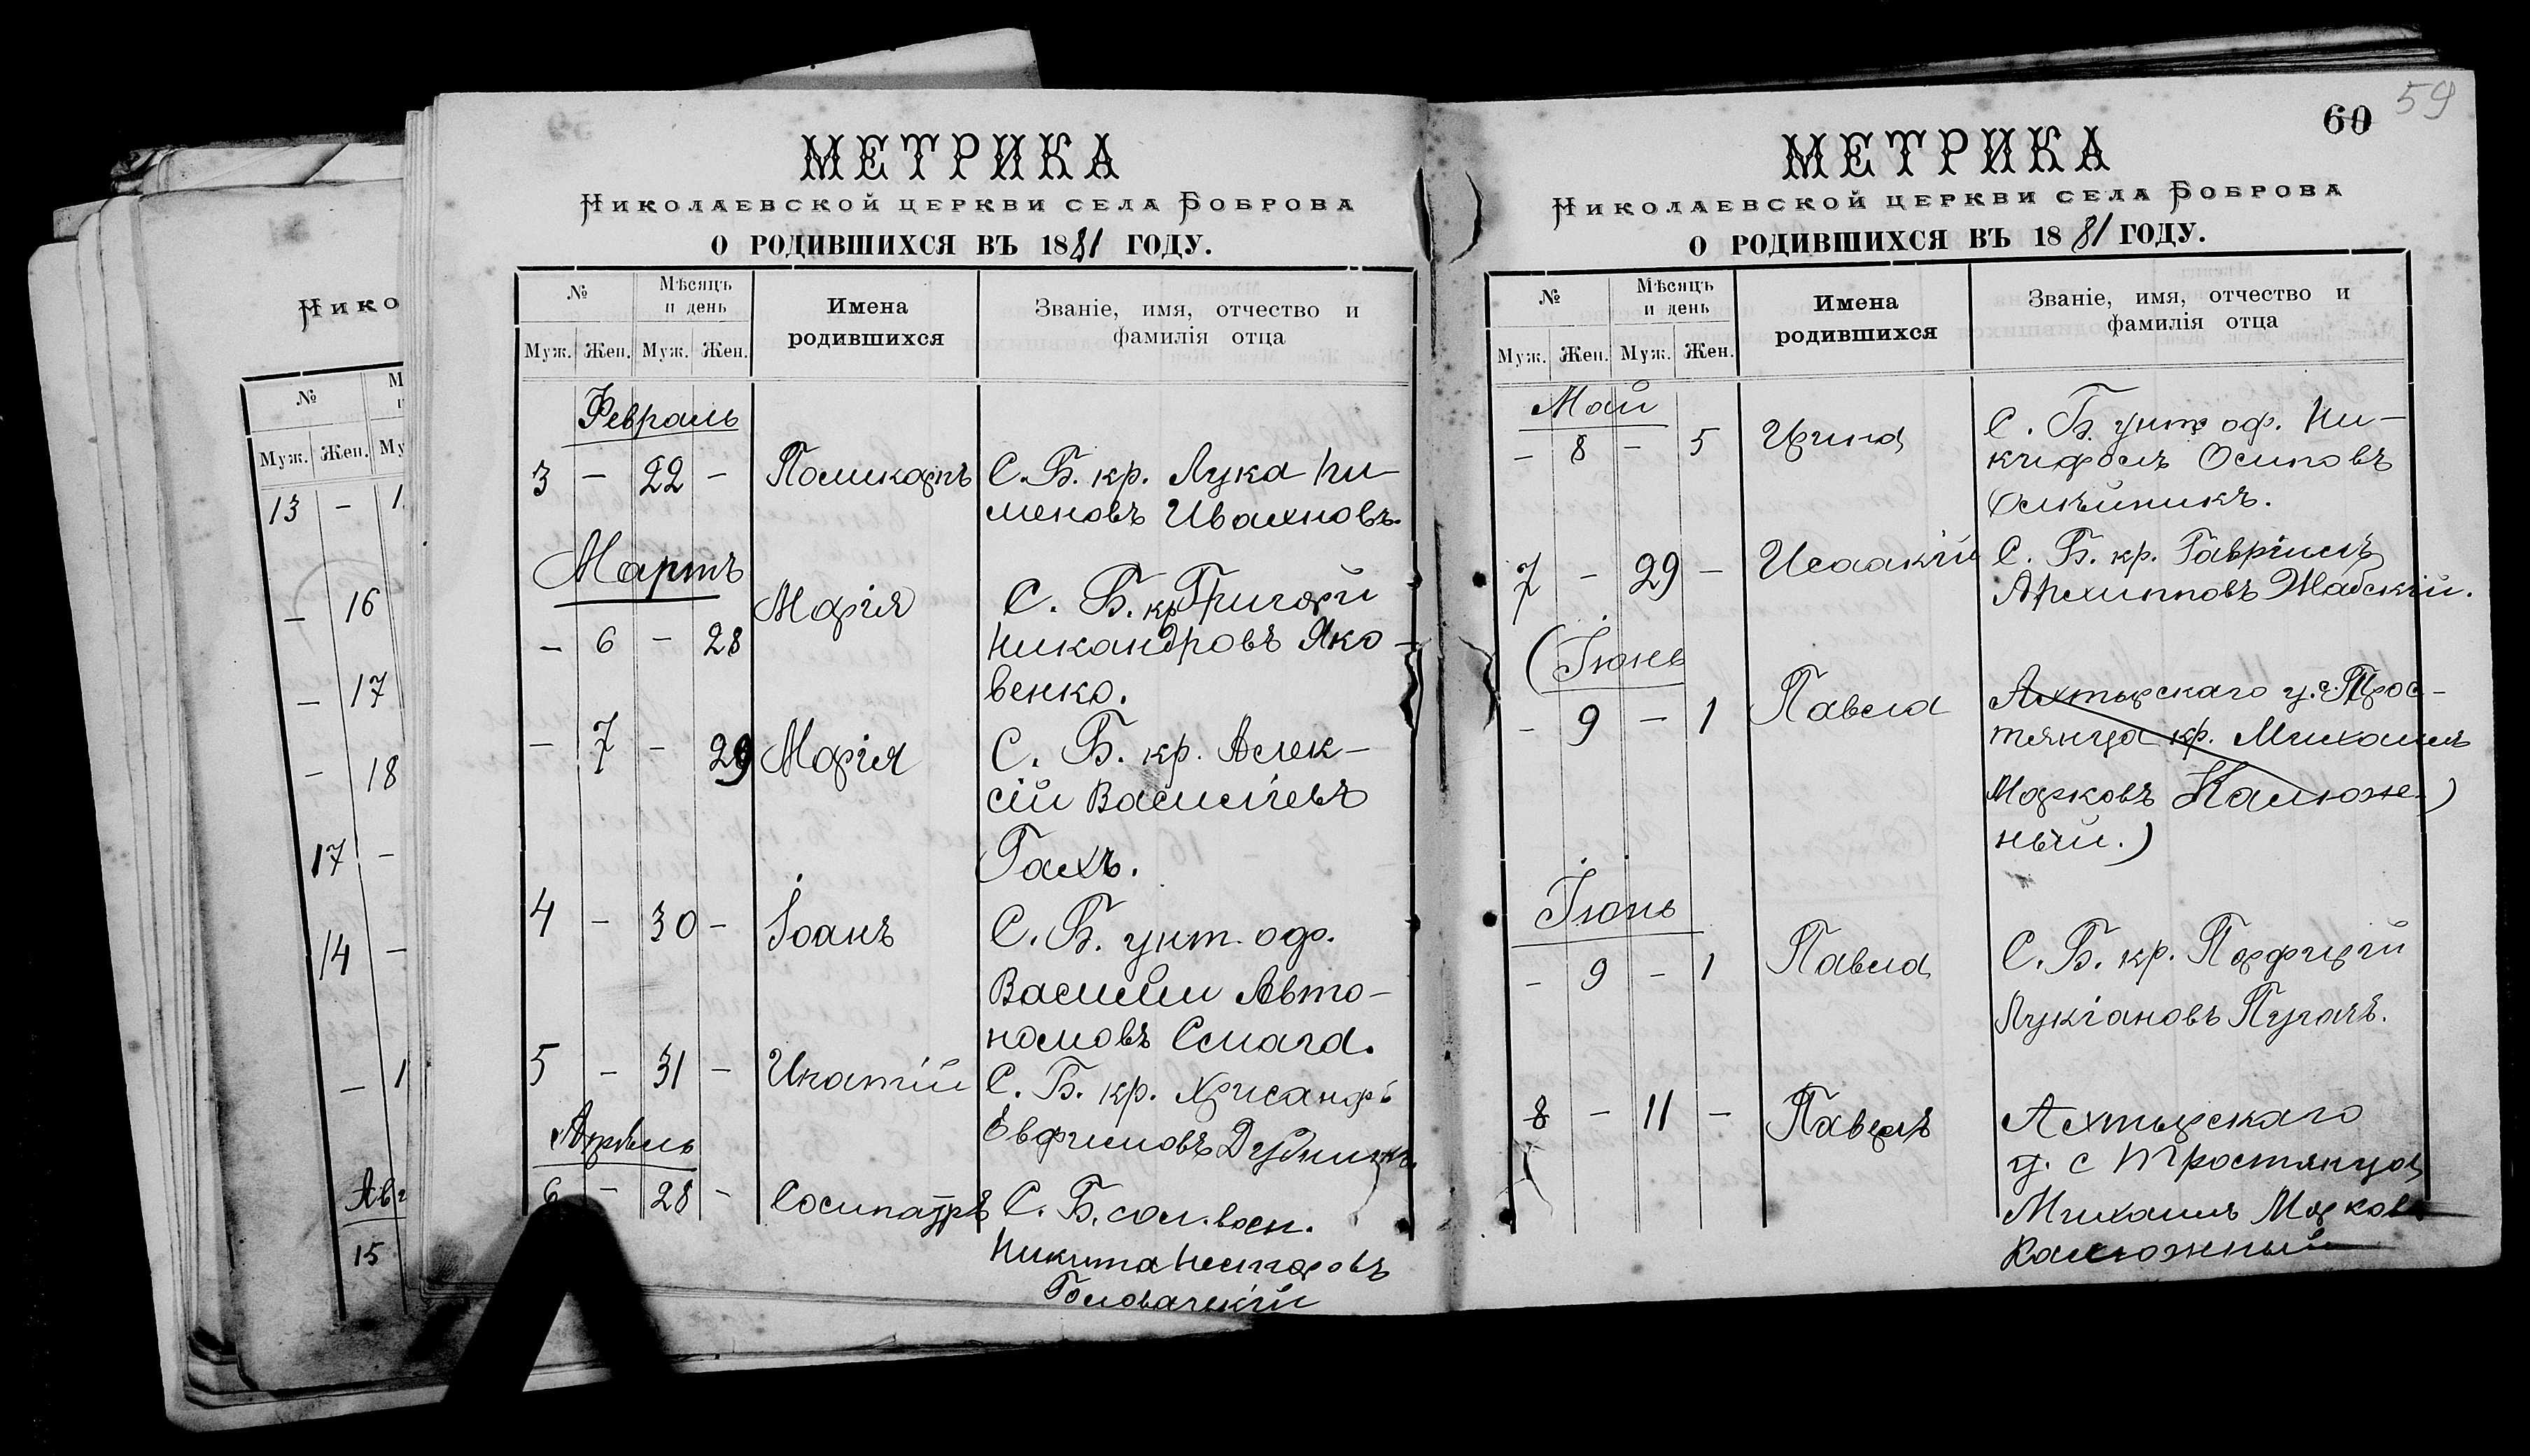 НИКО
№
Муж. Жен. Му
13 -
- 16
- 17
- 18
17 -
14 -
-
Авг
15
МЕТРИКА
НИКОЛАЕВСКОЙ ЦЕРКВИ СЕЛА БОБРОВА
О РОДИВШИХСЯ ВЪ 1881 ГОДУ.
№ Мѣсяцъ и день Имена родившихся Званіе, имя, отчество и фамилія отца
Муж. Жен. Муж. Жен.
Февраль
3 - 22 - Поликарпъ С.Б. кр. Лука Пи-
меновъ Ивахновъ.
Мартъ
- 6 - 28 Марія С. Б. кр. Григорій
Никандровъ Яко-
венко.
- 7 - 29 Марія С. Б. кр. Алек-
сій Василіевъ
Гахъ.
4 - 30 - Іоанъ С. Б. унт. оф.
Василій Авто-
номовъ Смага.
5 - 31 - Ипатій С. Б. кр. Хрисанфъ
Евфимовъ
Апрѣль
6 - 28 - Сосипатръ С. Б.
Никита Несторовъ
59
60
МЕТРИКА
НИКОЛАЕВСКОЙ ЦЕРКВИ СЕЛА БОБРОВА
О РОДИВШИХСЯ ВЪ 1881 ГОДУ.
№ Мѣсяцъ и день Имена родившихся Званіе, имя, отчество и фамилія отца
Муж. Жен. Муж. Жен.
Май
- 8 - 5 Ирина С. Б. унт оф. Ни-
кифоръ Осиповъ
Олѣйникъ.
7 - 29 - Исаакій С. Б. кр. Гавріилъ
Архипповъ
(Іюнь
- 9 - 1 Павла Ахтырскаго у. с. Трос-
тянца кр. Михаилъ
Марковъ Калюж-)
ный.)
Іюнь
- 9 - 1 Павла С. Б. кр. Порфирій
Лукіановъ Пугачъ.
8 - 11 - Павелъ Ахтырскаго
у. с Тростянца
Михаилъ Марковъ
Калюжный